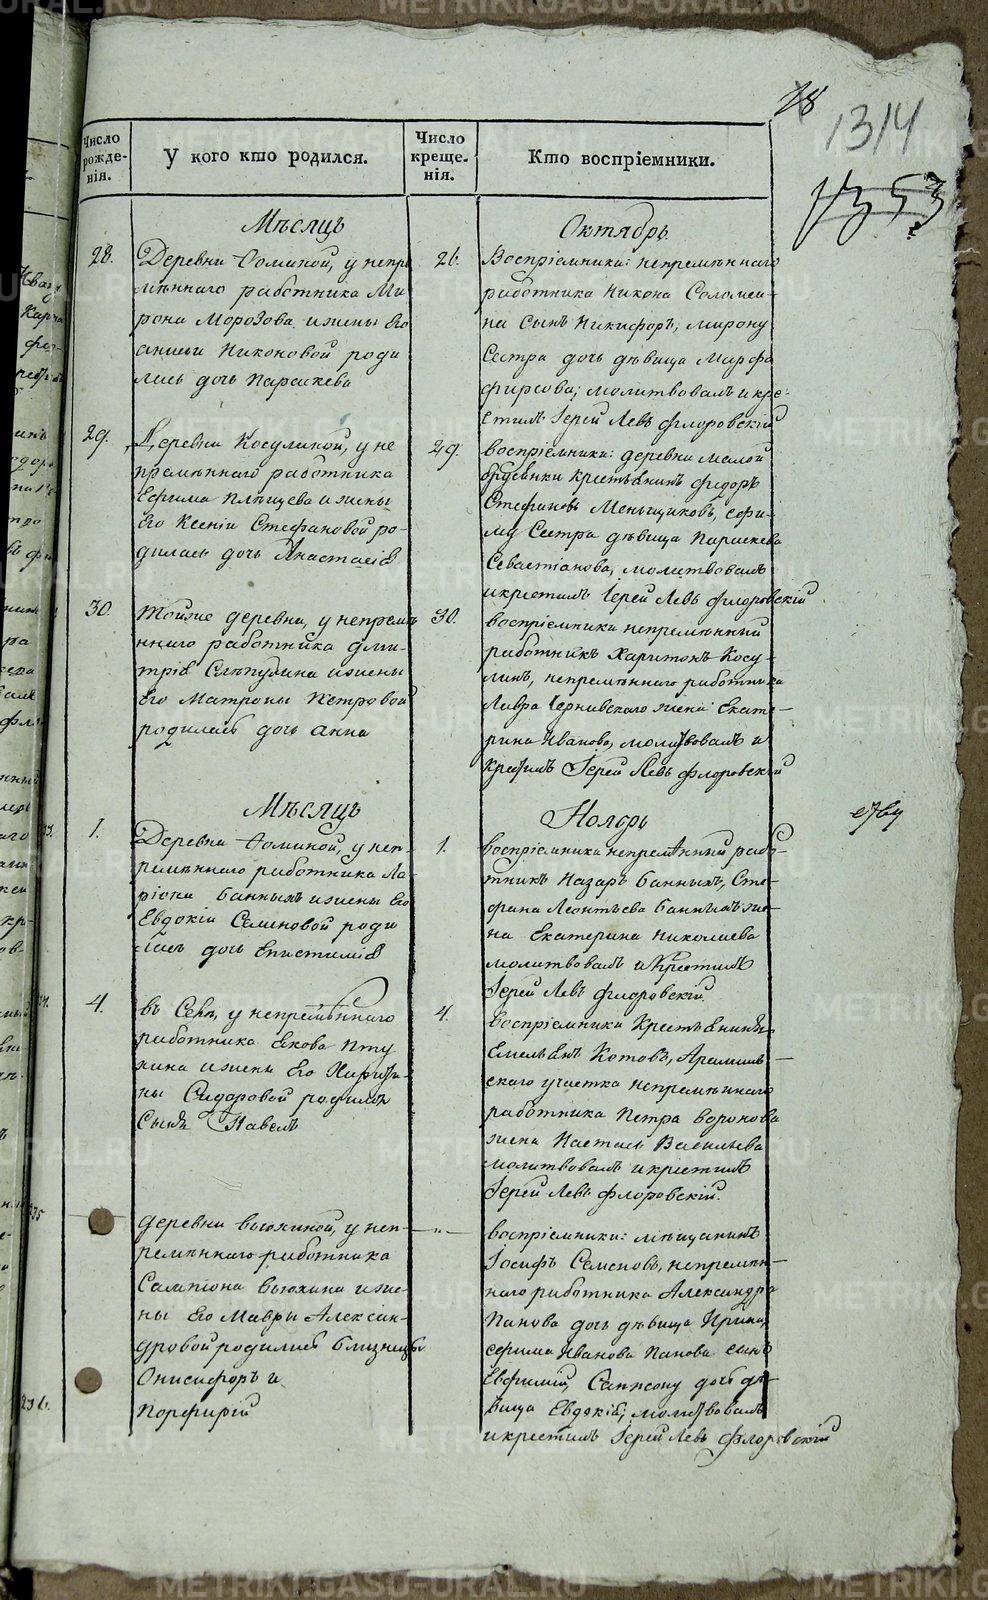 78
1314
1353
Число рожде-нія.
У кого кто родился.
Число креще-нія.
Кто воспріемники.
Мѣсяцъ
Октябрь
28.
Деревни Фоминой, у непре
мѣннаго работника Ми
рона Морозова и жены Его
Никоновой роди
лась дочь Параскева
26.
Воспріемники: непремѣннаго
работника Никона Соломеи-
на сынъ Никифоръ, Мирону
Сестра дочь дѣвица Марфа
Фирсова; молитвовалъ и кре-
стилъ Іерей Левъ Флоровскій
29.
Деревни Косулиной, у не
премѣннаго работника
Ефима Плѣщева и жены
Его Ксеніи Стефановой ро-
дилась дочь Анастасія
29.
воспріемники: деревни малой
крестьянинъ Федоръ
Стефановъ Меньщиковъ, Ефи-
му Сестра дѣвица Параскева
Севастіанова, молитвовалъ
и крестилъ Іерей Левъ Флоровскій
30.
Тойже деревни, у непремѣ
ннаго работника Дми-
трія Слѣпухина и жены
Его Матроны Петровой
родилась дочь Анна
30.
воспріемники непремѣнный
работникъ Харитонъ Косу-
линъ, непремѣннаго работника
Лавра жена Екате-
рина Иванова, молитвовалъ и
крестилъ Іерей Левъ Флоровскій
Мѣсяцъ
Ноябрь
1.
Деревни Фоминой, у неп-
ремѣннаго работника Ла-
ріона Банныхъ и жены Его
Евдокіи Семеновой роди
лась дочь Епистимія
1.
воспріемники непремѣнный рабо-
тникъ Назаръ Банныхъ, Сте-
фана Леонтьева Банныхъ же-
на Екатерина Николаева
молитвовалъ и крестилъ
Іерей Левъ Флоровскій.
4.
въ Селѣ, у непремѣннаго
работника Якова Пту
хина и жены Его Хирити-
ны Сидоровой родился
Сынъ Павелъ
4.
воспріемники Крестьянинъ
Емельянъ Котовъ, Арамиль-
скаго участка непремѣннаго
работника Петра Воронова
жена Настасья Васильева
молитвовалъ и крестилъ
Іерей Левъ Флоровскій.
деревни Вьюхиной, у неп-
ремѣннаго работника
Сампсона Вьюхина и же-
ны Его Мавры Алексан-
дровой родились близнецы
Онисифоръ и
Порфирій
воспріемники: мѣщанинъ
Іосифъ Семеновъ, непремѣн-
наго работника Александра
Панова дочь дѣвица Ирина,
Ефима Иванова Панова сынъ
Евфимій, Сампсону дочь дѣ-
вица Евдокія; молитвовалъ
и крестилъ Іерей Левъ Флоровскій
METRIKI.GASU-URAL.RU